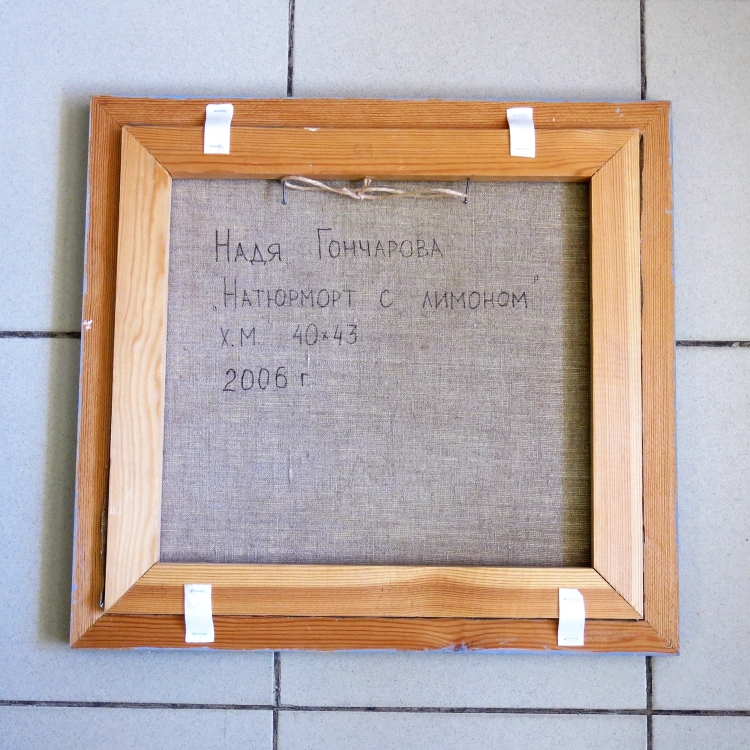 Надя Гончарова
„Натюрморт с лимоном"
х.м. 40×43
2006 г.